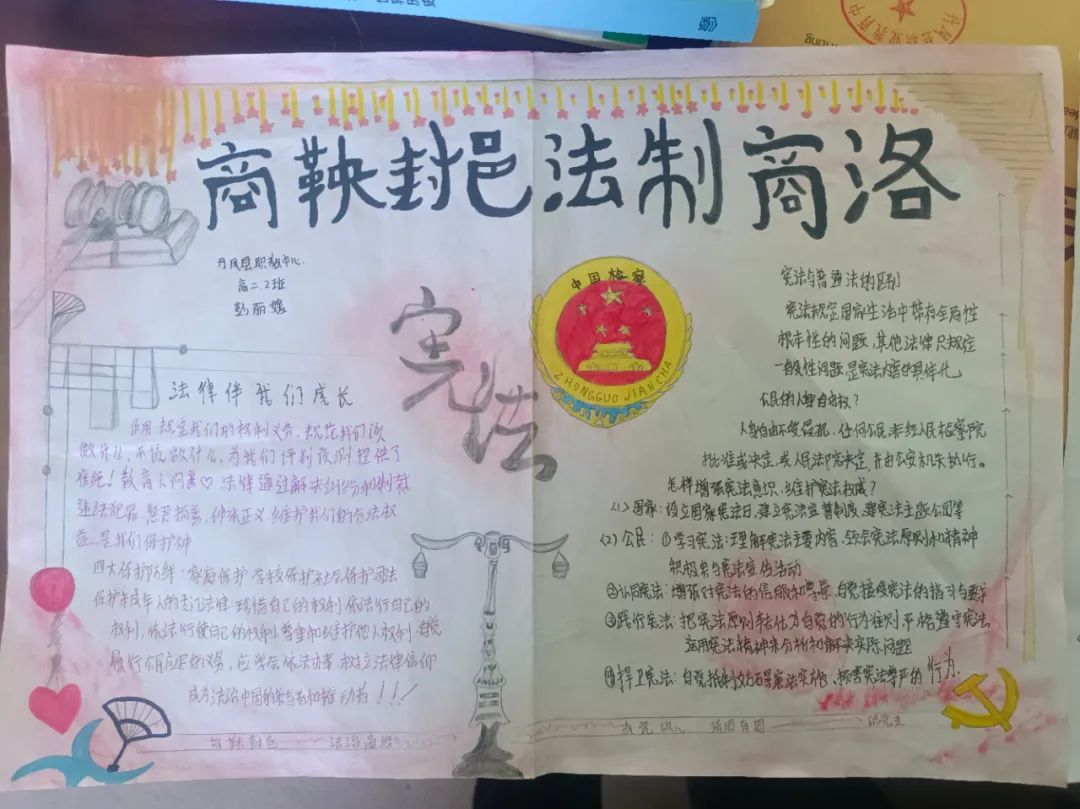 商鞅封邑法制商洛
丹凤县职教中心
高二.2班
彭丽媛
宪法
中国检察
ZHONGGUO JIANCHA
法律伴我们成长
作用 规定我们的权利义务, 规范我们该
做什么, 不该做什么, 为我们评判识别提供了
准绳! 教育人向善♡ 法律通过解决纠纷和制裁
违法犯罪, 惩恶扬善, 伸张正义, 维护我们的合法权
益, 是我们保护神
四大保护防线: 家庭保护 学校保护 社会保护 司法
保护 未成年人的 法律 珍惜自己的权利 依法行自己的
权利, 依法行使自己的权利 尊重和维护他人权利 自觉
履行 的义务, 应学会依法办事, 树立法律信仰
成为法治中国的参与者和推动者!!!
宪法与普通法的区别
宪法规定国家生活中带有全局性
根本性的问题, 其他法律只规定
一般性问题, 是宪法内容的具体化,
公民的人身自由权?
人身自由不受侵犯, 任何公民 非经人民检察院
批准或决定, 或人民法院决定, 并由公安机关执行。
怎样增强宪法意识, 维护宪法权威?
<1>国家: 设立国家宪法日, 建立宪法宣誓制度, 建宪法主题公园等
(2) 公民: ①学习宪法: 理解宪法主要内容, 领会宪法原则和精神
积极参与宪法宣传活动
②认同宪法: 增强对宪法的信服和尊崇, 自觉接受宪法的指引与要求
③践行宪法: 把宪法原则转化为自觉的行为准则, 严格遵守宪法,
运用宪法精神来分析和解决实际问题
④捍卫宪法: 自觉抵制 宪法实施, 损害宪法尊严的行为.
商鞅封邑
法治